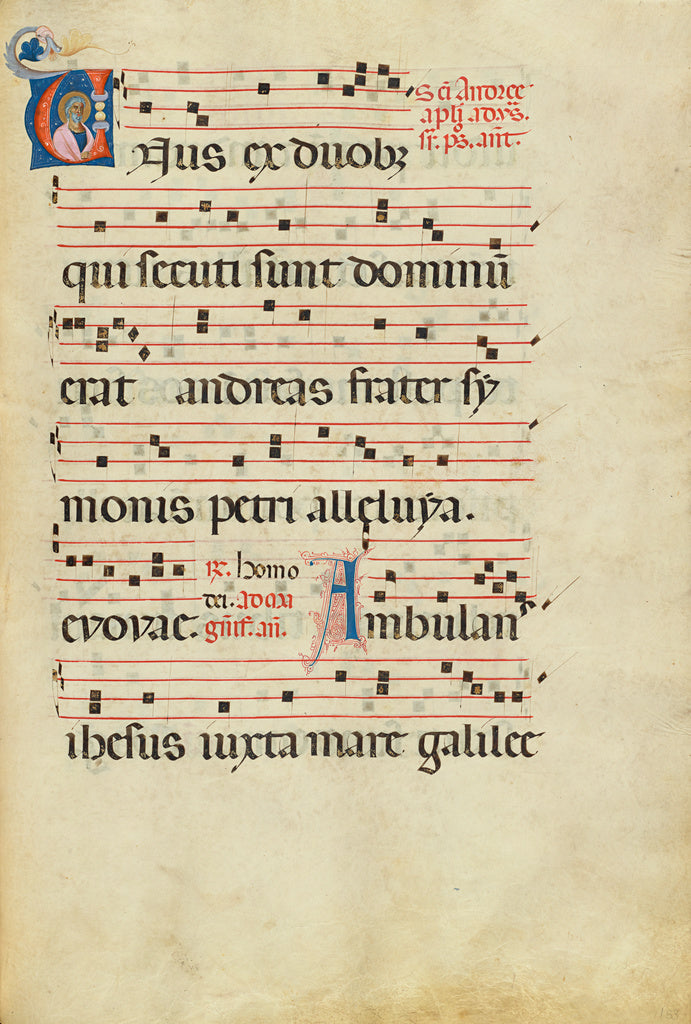 Sci Andree
apli ad vs.
sr. ps. ant.
Unus ex duobz
qui secuti sunt dominū
erat andreas frater sy
monis petri alleluya.
R. homo
dei. ad ma
gnif. an.
evovae. Ambulans
ihesus iuxta mare galilee